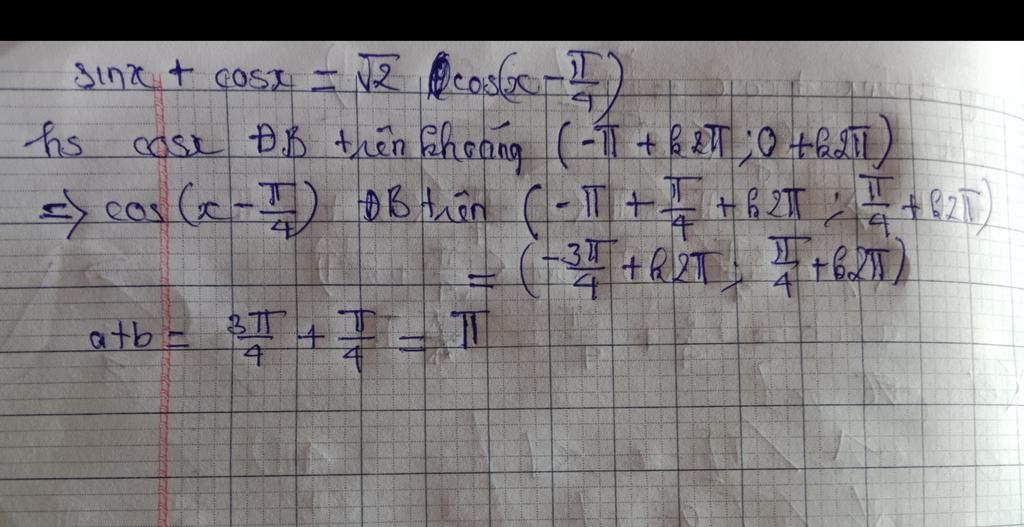 sinx + cosx = √2 cos(x - π/4)
hs cosx ĐB trên khoảng (-π + k2π ; 0 + k2π)
=> cos(x - π/4) ĐB trên (-π + π/4 + k2π ; π/4 + k2π)
= (-3π/4 + k2π ; π/4 + k2π)
a+b = 3π/4 + π/4 = π